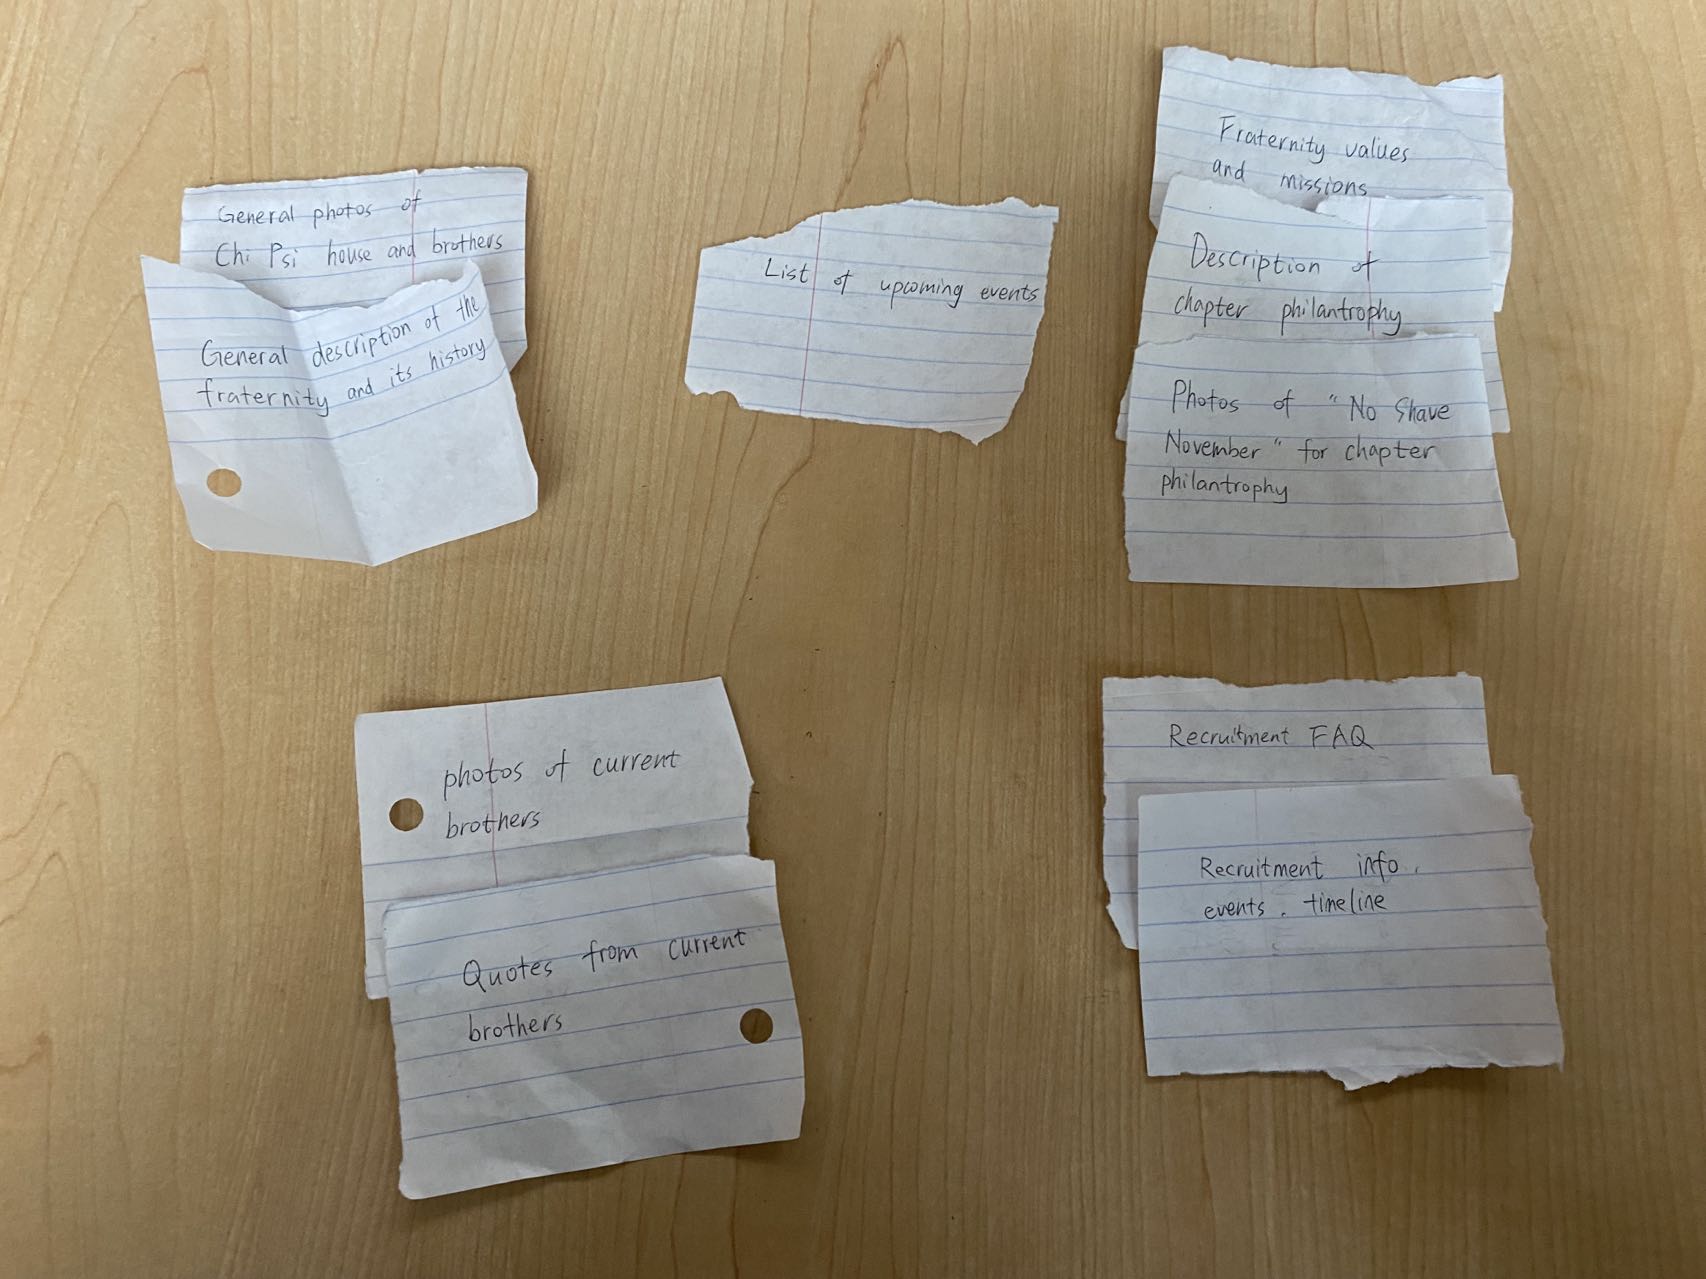 General photos of
Chi Psi house and brothers
General description of the
fraternity and its history
List of upcoming events
Fraternity values
and missions
Description of
chapter philantrophy
Photos of "No Shave
November" for chapter
philantrophy
photos of current
brothers
Quotes from current
brothers
Recruitment FAQ
Recruitment info,
events, timeline